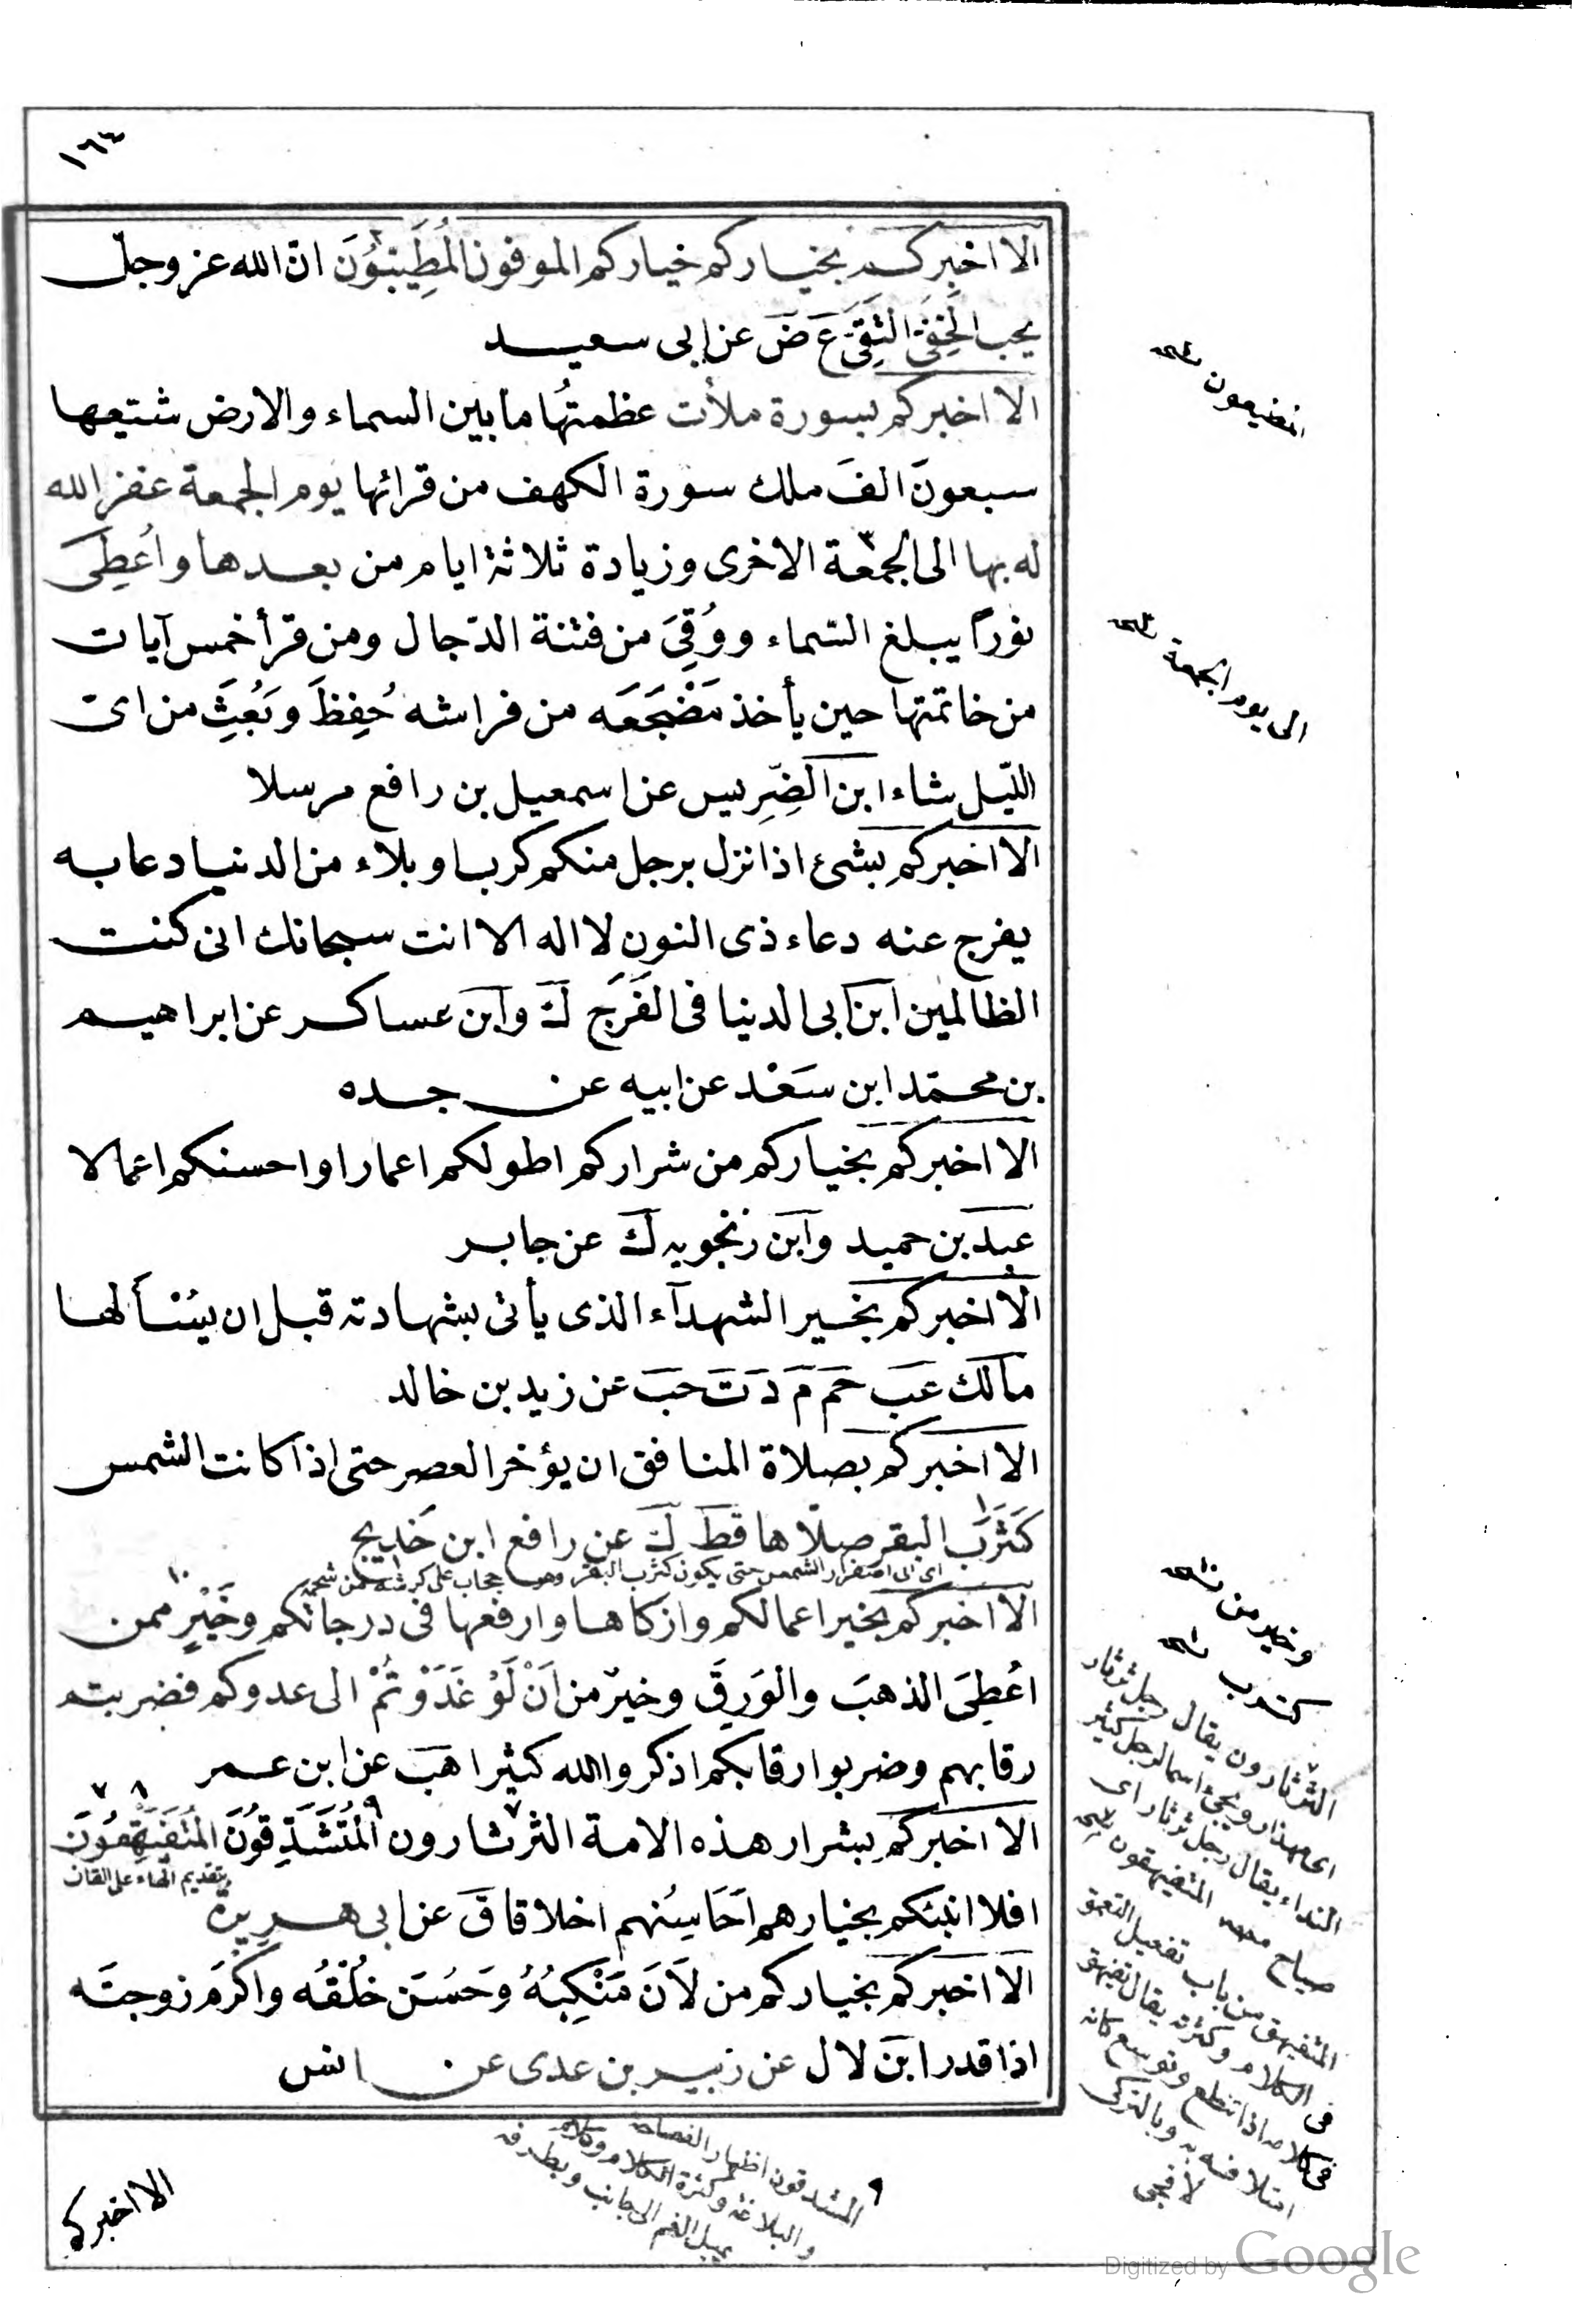 ١٦٣
الا اخبركم بخياركم خياركم الموفون المُطَيِّبُوُنَ ان الله عز وجلّ
يحب الخَفِيَّ التَقِىَّ عَ ضَ عن ابى سعيد
الا اخبركم بسورة ملأت عظمتُها ما بين السماء والارض شتيعها
سبعونَ الفَ ملك سورة الكهف من قرائها يوم الجمعة غفر الله
له بها الى الجمُعة الاخرى وزيادة ثلاثة ايام من بعدها واُعطِىَ
نورًا يبلغ السّماء ووُقِىَ من فتنة الدّجال ومن قرأ خمس آيات
من خاتمتها حين يأخذ مَضْجَعَه من فراشه حُفِظَ وبُعِثَ من اىّ
اللّيل شاء ابن الضِّرِيس عن اسمعيل بن رافع مرسلا
الا اخبركم بشئ اذا نزل برجل منكم كرب او بلاء من الدنيا دعا به
يفرج عنه دعاء ذى النون لا اله الا انت سبحانك انى كنت
الظالمين ابن ابى الدنيا فى الفَرَج كَ وابن عساكر عن ابراهيم
بن محمّد ابن سَعْد عن ابيه عن جده
الا اخبركم بخياركم من شراركم اطولكم اعمارا واحسنكم اعمالا
عبد بن حميد وابن زنجويه كَ عن جابر
الا اخبركم بخير الشهدآء الذى يأتى بشهادته قبل ان يُسْألها
مالك عَب حَم مَ دَ تَ حَب عن زيد بن خالد
الا اخبركم بصلاة المنافق ان يؤخر العصر حتى اذا كانت الشمس
كَثَرَبِ البقر صلّاها قط كَ عن رافع ابن خَديج
اى الى اصفرار الشمس حتى يكون كثرب البقر وهو حجاب على كرشه من شحمه
الا اخبركم بخير اعمالكم وازكاها وارفعها فى درجاتكم وخَيْرٍ ممن
اُعطِىَ الذهبَ والوَرِقَ وخيرٌ من اَنْ لَوْ غَدَوْتُمْ الى عدوكم فضربتم
رقابهم وضربوا رقابكم اذكروا الله كثيرا هَب عن ابن عمر
الا اخبركم بشرار هذه الامة الثرثارون المُتَشَدِّقُوُنَ المُتَفَيْهِقُونَ
بتقديم الهاء على القاف
افلا انبئكم بخيارهم اَحَاسِنُهم اخلاقا قَ عن ابى هريرة
الا اخبركم بخياركم من لَانَ مَنْكِبُهُ وَحَسُنَ خُلْقُه واكْرَمَ زوجتَه
اذا قدر ابن لال عن زبير بن عدى عن انس
الا اخبركم
الى يوم الجمعة
وخير من
كثرب
الثرثارون يقال رجل ثرثار
النداء يقال رجل ثرثار اى
صياح المتفيهقون
المتفيهق من باب تفعيل التعمق
فى الكلام وكثرته يقال تفيهق
فى كلامه اذا تنطع وتوسع كانه
امتلا فمه به وبالتركى
٩ المتشدقون اظهار الفصاحة
والبلاغة وكثرة الكلام
بميل الفم الى جانب وبطرفه
Digitized by Google